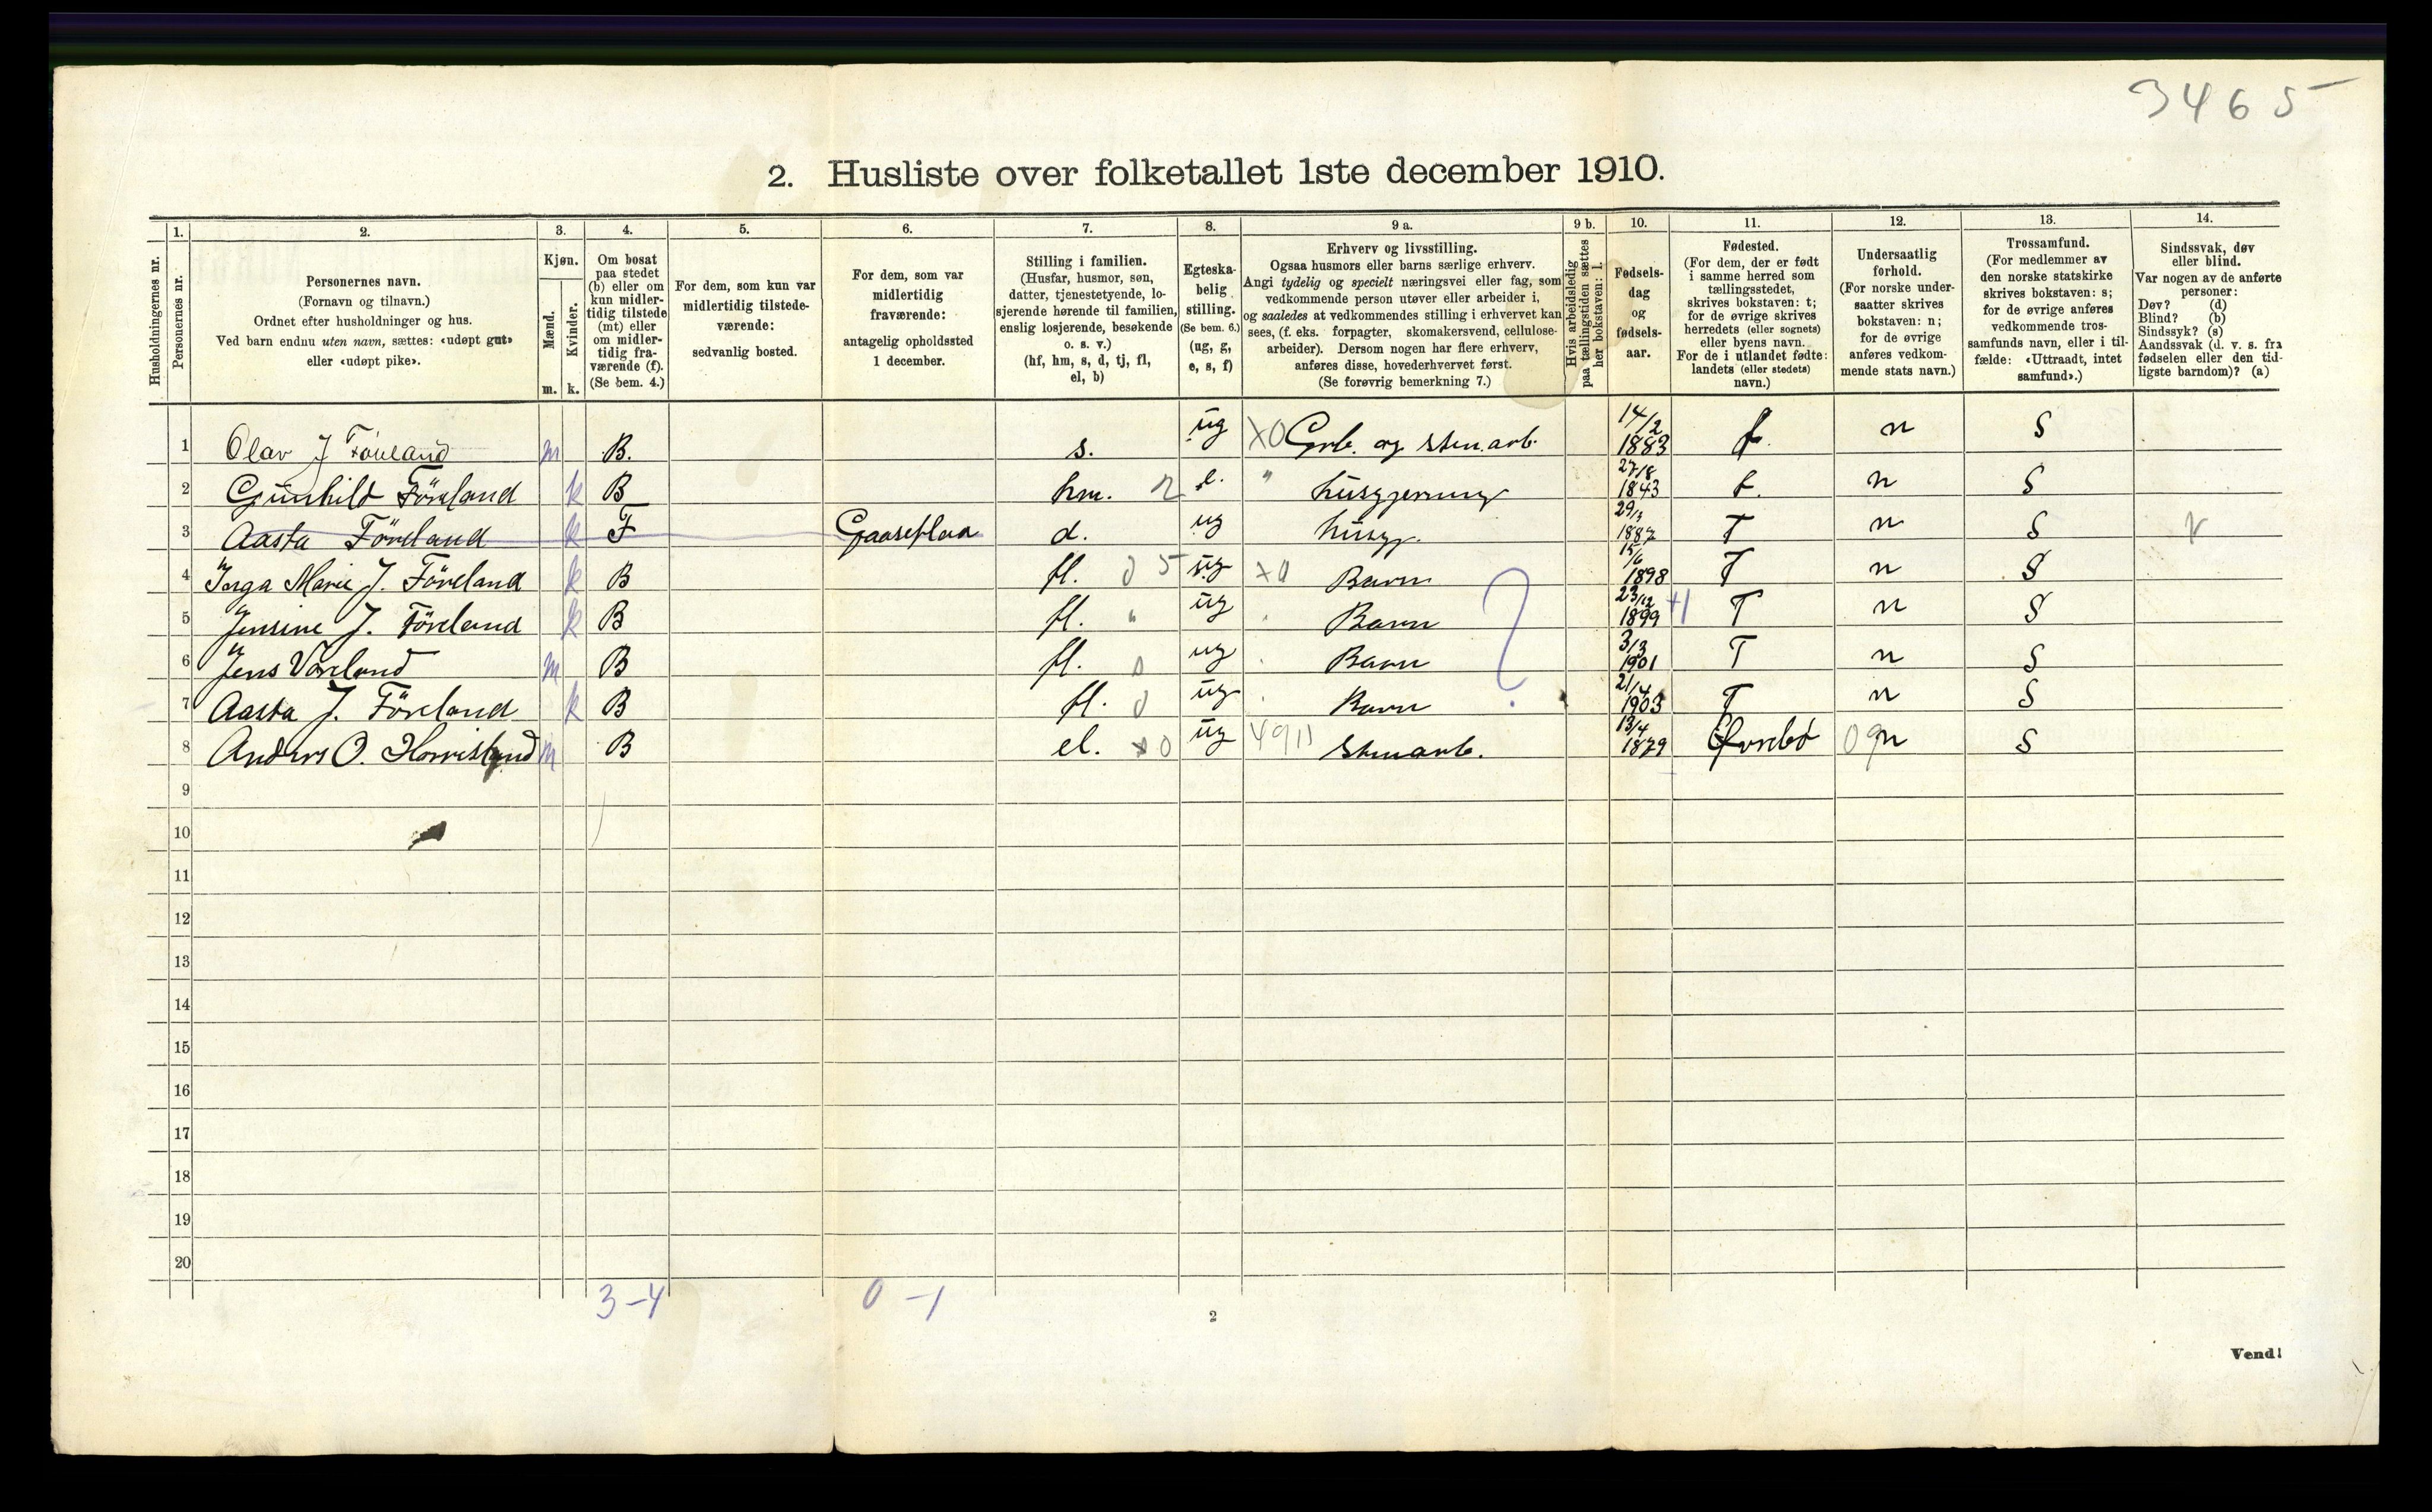 3465
2. Husliste over folketallet 1ste december 1910.
Husholdningernes nr.
1.
Personernes nr.
2.
Personernes navn.
(Fornavn og tilnavn.)
Ordnet efter husholdninger og hus.
Ved barn endnu uten navn, sættes: «udøpt gut»
eller «udøpt pike».
3.
Kjøn.
Mænd.
Kvinder.
m. k.
4.
Om bosat
paa stedet
(b) eller om
kun midler-
tidig tilstede
(mt) eller
om midler-
tidig fra-
værende (f).
(Se bem. 4.)
5.
For dem, som kun var
midlertidig tilstede-
værende:
sedvanlig bosted.
6.
For dem, som var
midlertidig
fraværende:
antagelig opholdssted
1 december.
7.
Stilling i familien.
(Husfar, husmor, søn,
datter, tjenestetyende, lo-
sjerende hørende til familien,
enslig losjerende, besøkende
o. s. v.)
(hf, hm, s, d, tj, fl,
el, b)
8.
Egteska-
belig
stilling.
(Se bem. 6.)
(ug, g,
e, s, f)
9 a.
Erhverv og livsstilling.
Ogsaa husmors eller barns særlige erhverv.
Angi tydelig og specielt næringsvei eller fag, som
vedkommende person utøver eller arbeider i,
og saaledes at vedkommendes stilling i erhvervet kan
sees, (f. eks. forpagter, skomakersvend, cellulose-
arbeider). Dersom nogen har flere erhverv,
anføres disse, hovederhvervet først.
(Se forøvrig bemerkning 7.)
9 b.
Hvis arbeidsledig
paa tællingstiden sættes
her bokstaven: l.
10.
Fødsels-
dag
og
fødsels-
aar.
11.
Fødested.
(For dem, der er født
i samme herred som
tællingsstedet,
skrives bokstaven: t;
for de øvrige skrives
herredets (eller sognets)
eller byens navn.
For de i utlandet fødte:
landets (eller stedets)
navn.)
12.
Undersaatlig
forhold.
(For norske under-
saatter skrives
bokstaven: n;
for de øvrige
anføres vedkom-
mende stats navn.)
13.
Trossamfund.
(For medlemmer av
den norske statskirke
skrives bokstaven: s;
for de øvrige anføres
vedkommende tros-
samfunds navn, eller i til-
fælde: «Uttraadt, intet
samfund».)
14.
Sindssvak, døv
eller blind.
Var nogen av de anførte
personer:
Døv? (d)
Blind? (b)
Sindssyk? (s)
Aandssvak (d. v. s. fra
fødselen eller den tid-
ligste barndom)? (a)
1 Olav J Föreland m B. s. ug X0 Grb. og stenarb. 14/2 1883 t. n S
2 Gunhild Föreland k B hm. e. " husgjerning 27/8 1843 t. n S
3 Aasta Föreland k F Gaaseflaa d. ug husgj. 29/3 1887 T n S
4 Inga Marie J. Föreland k B fl. 5 ug X0 Barn 15/6 1898 T n S
5 Jensine J. Föreland k B fl. " ug Barn 23/12 1899 +1 T n S
6 Jens Vöreland m B fl. ug Barn 3/3 1901 T n S
7 Aasta J. Föreland k B fl. ug Barn 21/4 1903 T n S
8 Anders O. m B el. ug 4911 Stenarb. 13/4 1879 Øvrebö 09 n S
9
10
11
12
13
14
15
16
17
18
19
20
3-4 0-1
2
Vend!